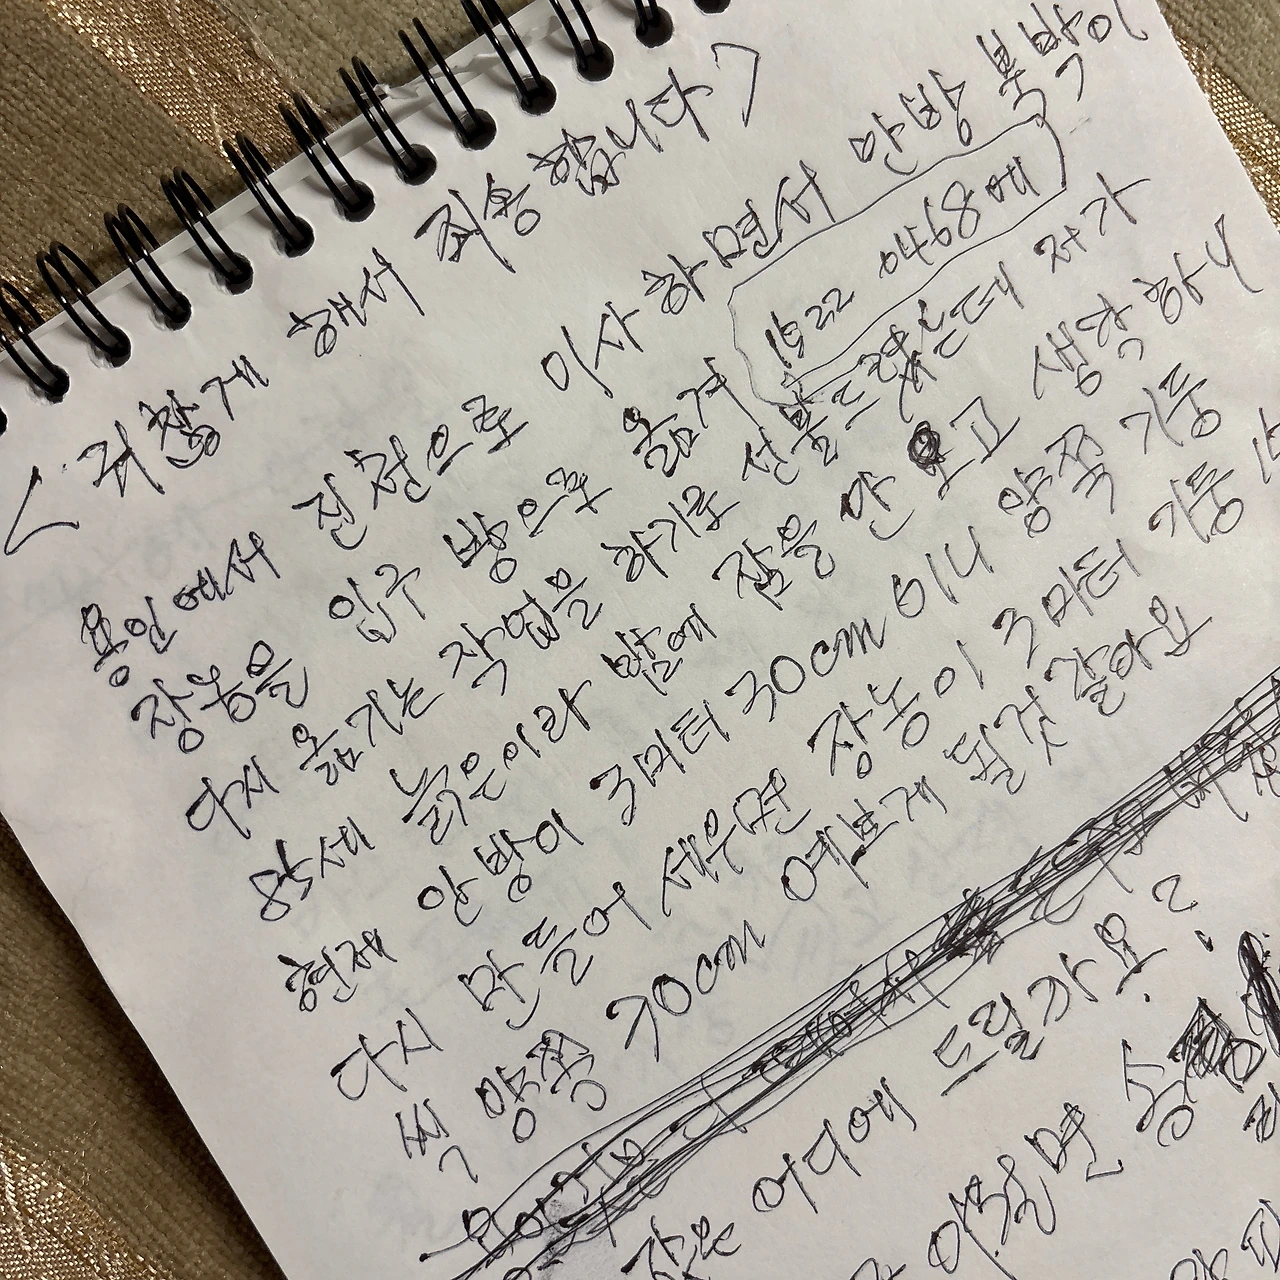 < 귀찮게 해서 죄송합니다 >
용인에서 진천으로 이사하면서 안방 붙박이
장농을 입구 방으로 옮겨 1522 0468에
다시 옮기는 작업을 하기로 선불드렸는데 저가
85세 늙은이라 밤에 잠을 안 오고 생각하니
현제 안방이 3미터 30cm 이니 양쪽 기둥
다시 만들어 세우면 장농이 3미터 기둥 15
씩 양쪽 30cm 예쁘게 될것 같아요
어디에 드릴까요?